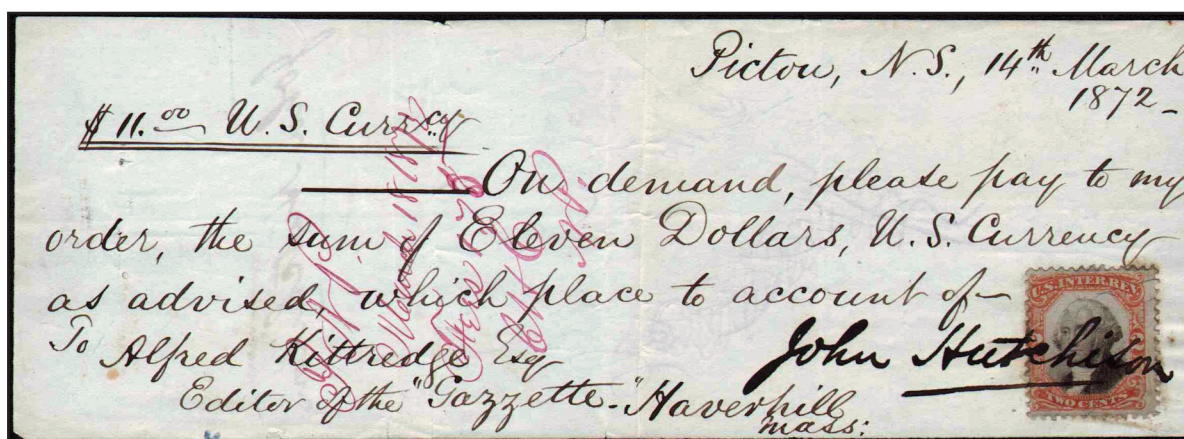 Pictou, N.S., 14th March
1872-
$11.00 U.S. Currcy
On demand, please pay to my
order, the sum of Eleven Dollars, U.S. Currency
as advised, which place to account of-
To Alfred Kittredge Esq
John Hutchison
Editor of the "Gazzette" - Haverhill
Mass:
U.S. INTER. REV.
TWO CENTS
March 18 1872